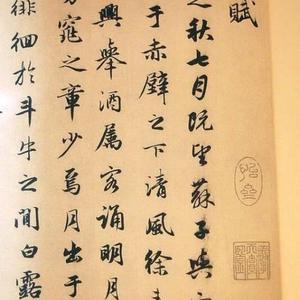 赋
之秋七月既望苏子與
于赤壁之下清風徐来
興舉酒属客诵明月
窕之章少焉月出于
徘徊於斗牛之間白露